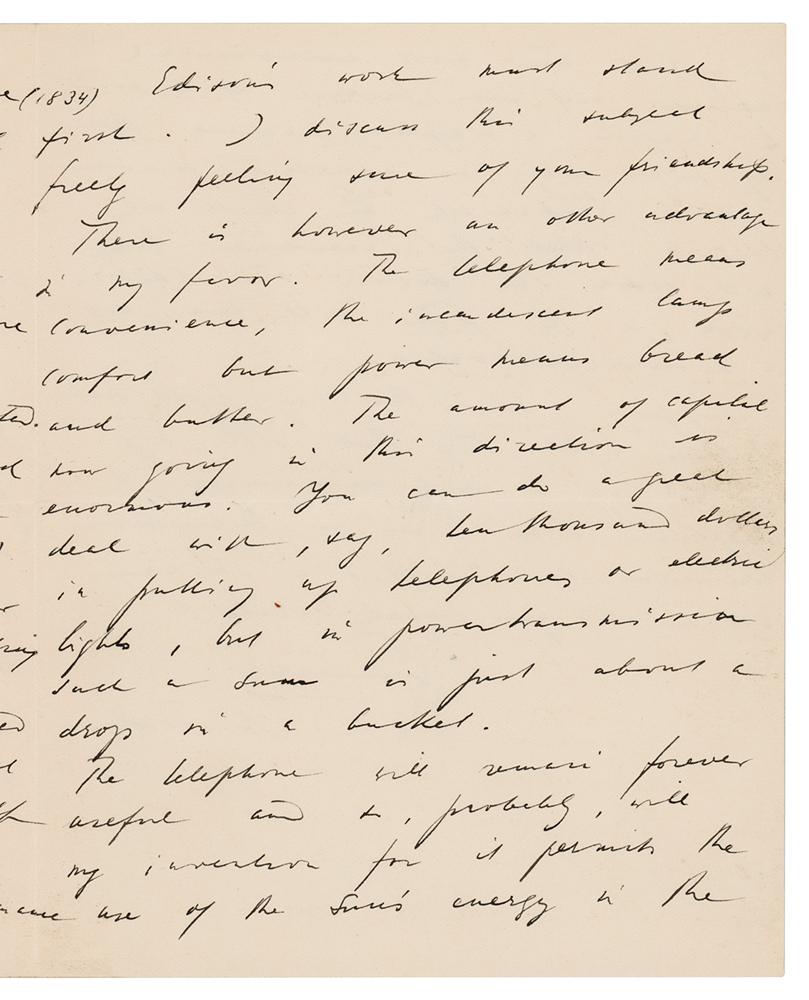 (1834) Edison's work must stand
first. I discuss this subject
freely feeling sure of your friendship.
There is however an other advantage
in my favor. The telephone means
convenience, the incandescent lamp
comfort but power means bread
and butter. The amount of capital
now going in this direction is
enormous. You can do a great
deal with, say, ten thousand dollars
in putting up telephones or electric
lights, but in powertransmission
such a sum is just about a
drop in a bucket.
The telephone will remain forever
useful and so, probably, will
my invention for it permits the
use of the Sun's energy in the